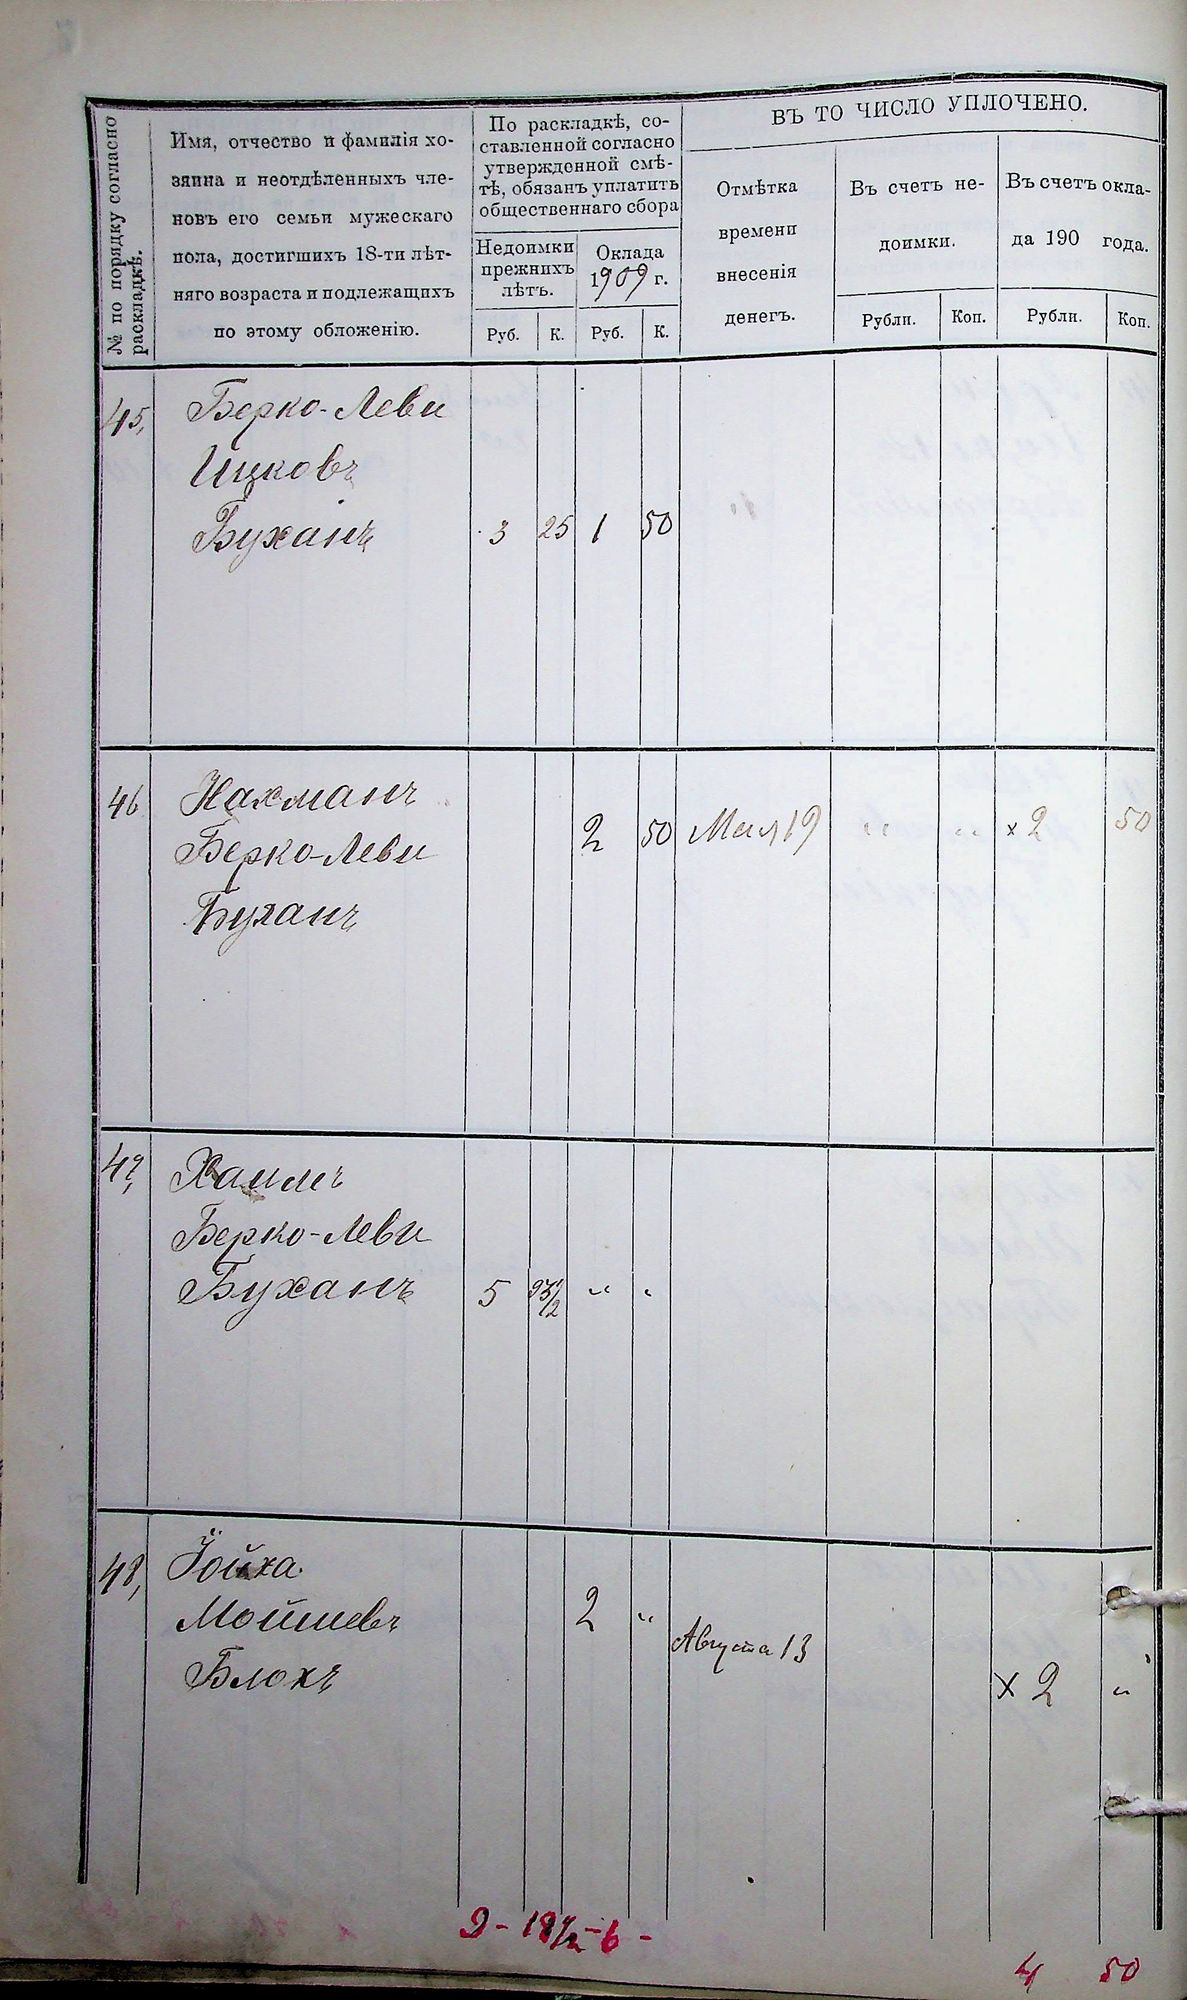 ВЪ ТО ЧИСЛО УПЛОЧЕНО.
№ по порядку согласно
раскладкѣ.
Имя, отчество и фамилія хо-
зяина и неотдѣленныхъ чле-
новъ его семьи мужескаго
пола, достигшихъ 18-ти лѣт-
няго возраста и подлежащихъ
по этому обложенію.
По раскладкѣ, со-
ставленной согласно
утвержденной смѣ-
тѣ, обязанъ уплатить
общественнаго сбора
Недоимки
прежнихъ
лѣтъ.
Оклада
1909 г.
Руб. К. Руб. К.
Отмѣтка
времени
внесенія
денегъ.
Въ счетъ не-
доимки.
Рубли. Коп.
Въ счетъ окла-
да 190 года.
Рубли. Коп.
45, Берко-Леви
Ицковъ
Буханъ 3 25 1 50
46 Нахманъ
2 50 Мая 19 " " × 2 50
Берко-Леви
Буханъ
47, Хаимъ
Берко-Леви
Буханъ 5 93 1/2 " "
48, Іойха
Мойшевъ 2 " Августа 13
Блохъ × 2 "
9 - 18 1/2 - 6 -
4 50